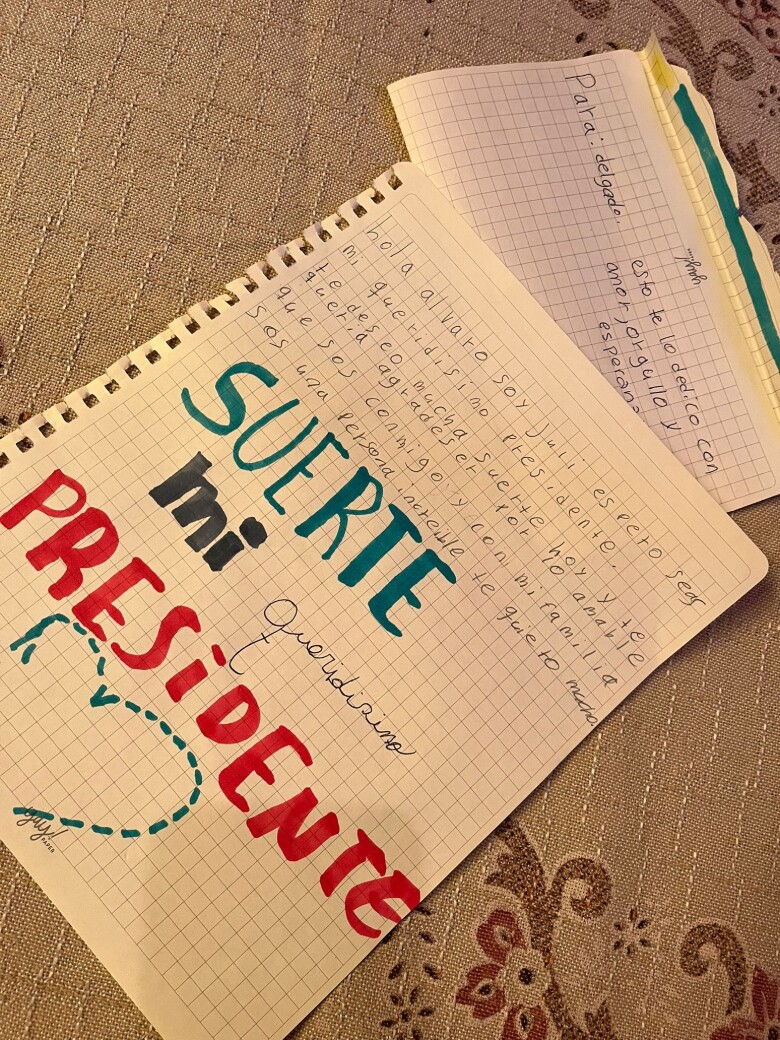 Para: delgado.
esto te lo dedico con
amor, orgullo y
hola alvaro soy Juli espero seas
mi queridisimo presidente.
te deseo mucha suerte hoy y te
queria agradeser por lo amable
que sos conmigo y con mi familia
sos una persona increible te quiero mucho.
SUERTE
mi
Queridisimo
PRESiDENTE
PAPER